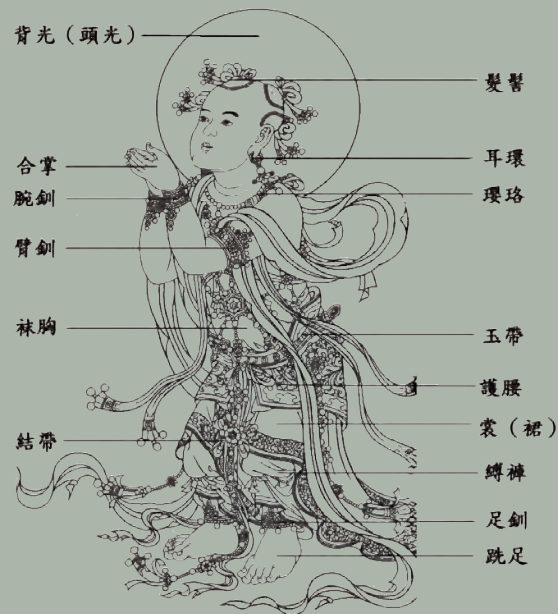 背光（頭光）
合掌
腕釧
臂釧
袜胸
結帶
髮髻
耳環
瓔珞
玉帶
護腰
裳（裙）
縛褲
足釧
跣足